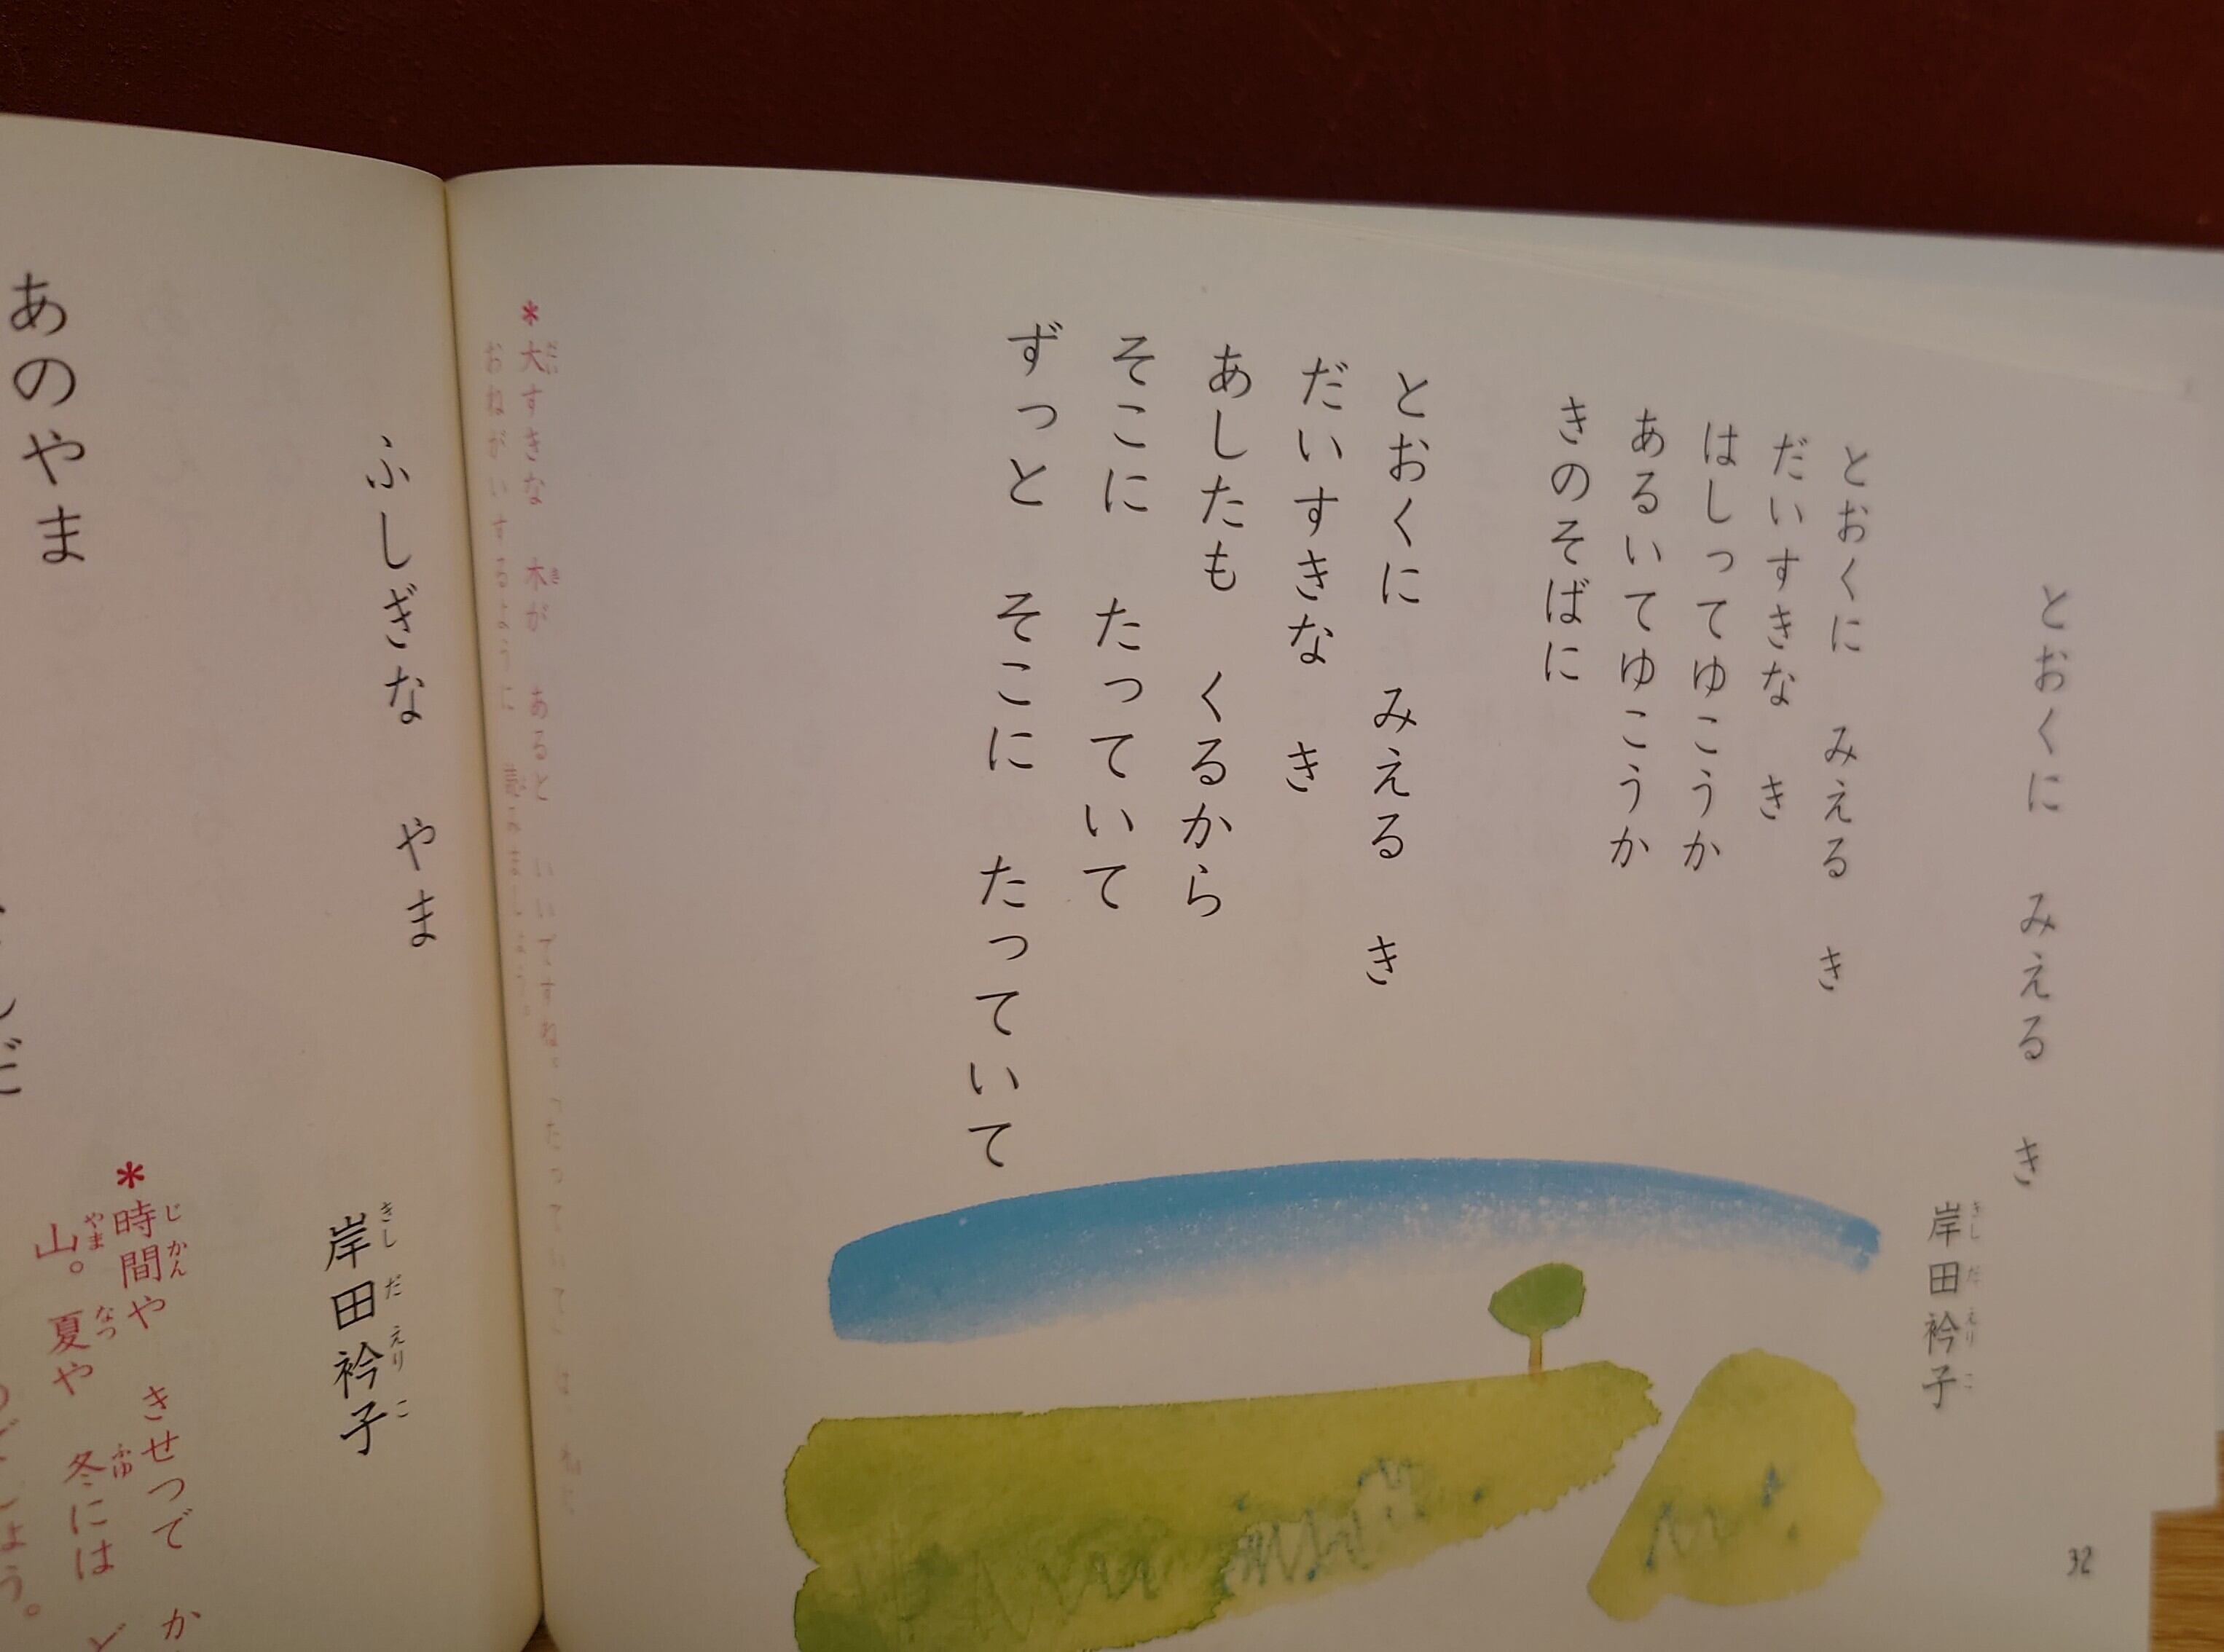 とおくに　みえる　き
岸田衿子
きしだえりこ
とおくに　みえる　き
だいすきな　き
はしってゆこうか
あるいてゆこうか
きのそばに
とおくに　みえる　き
だいすきな　き
あしたも　くるから
そこに　たっていて
ずっと　そこに　たっていて
*大すきな　木が　あると　いいですね。「たっていて」は、
だい　き
おねがいするように　読みましょう。
32
ふしぎな　やま
岸田衿子
きしだえりこ
*時間や　きせつで　か
じかん
山。夏や　冬には　ど
やま　なつ　ふゆ
あのやま